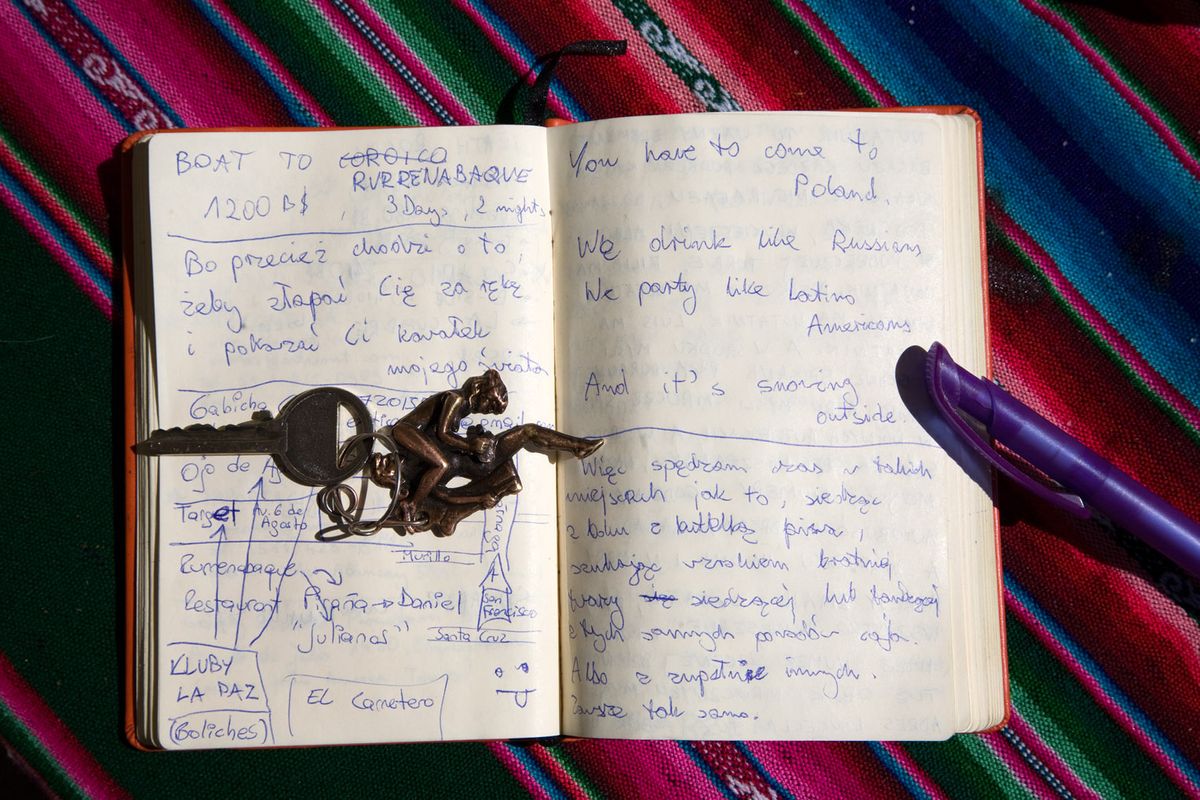 BOAT TO COROICO
RURRENABAQUE
1200 B$, 3 Days, 2 nights
Bo przecież chodzi o to,
żeby złapać Cię za rękę
i pokazać Ci kawałek
mojego świata
Gabicha
Ojo de
Target
Av. 6 de
Agosto
Murillo
Rurrenabaque
Restaurant Piraña → Daniel
"Julianos"
San
Francisco
Santa Cruz
KLUBY
LA PAZ
(Boliches)
EL Carretero
You have to come to
Poland.
We drink like Russians
We party like Latino
Americans
And it's snowing
outside.
Więc spędzam czas w takich
miejscach jak to, siedząc
z butelką piwa,
szukając wzrokiem
twarzy się siedzącej lub
z tych samych powodów
Albo z zupełnie innych.
Zawsze tak samo.